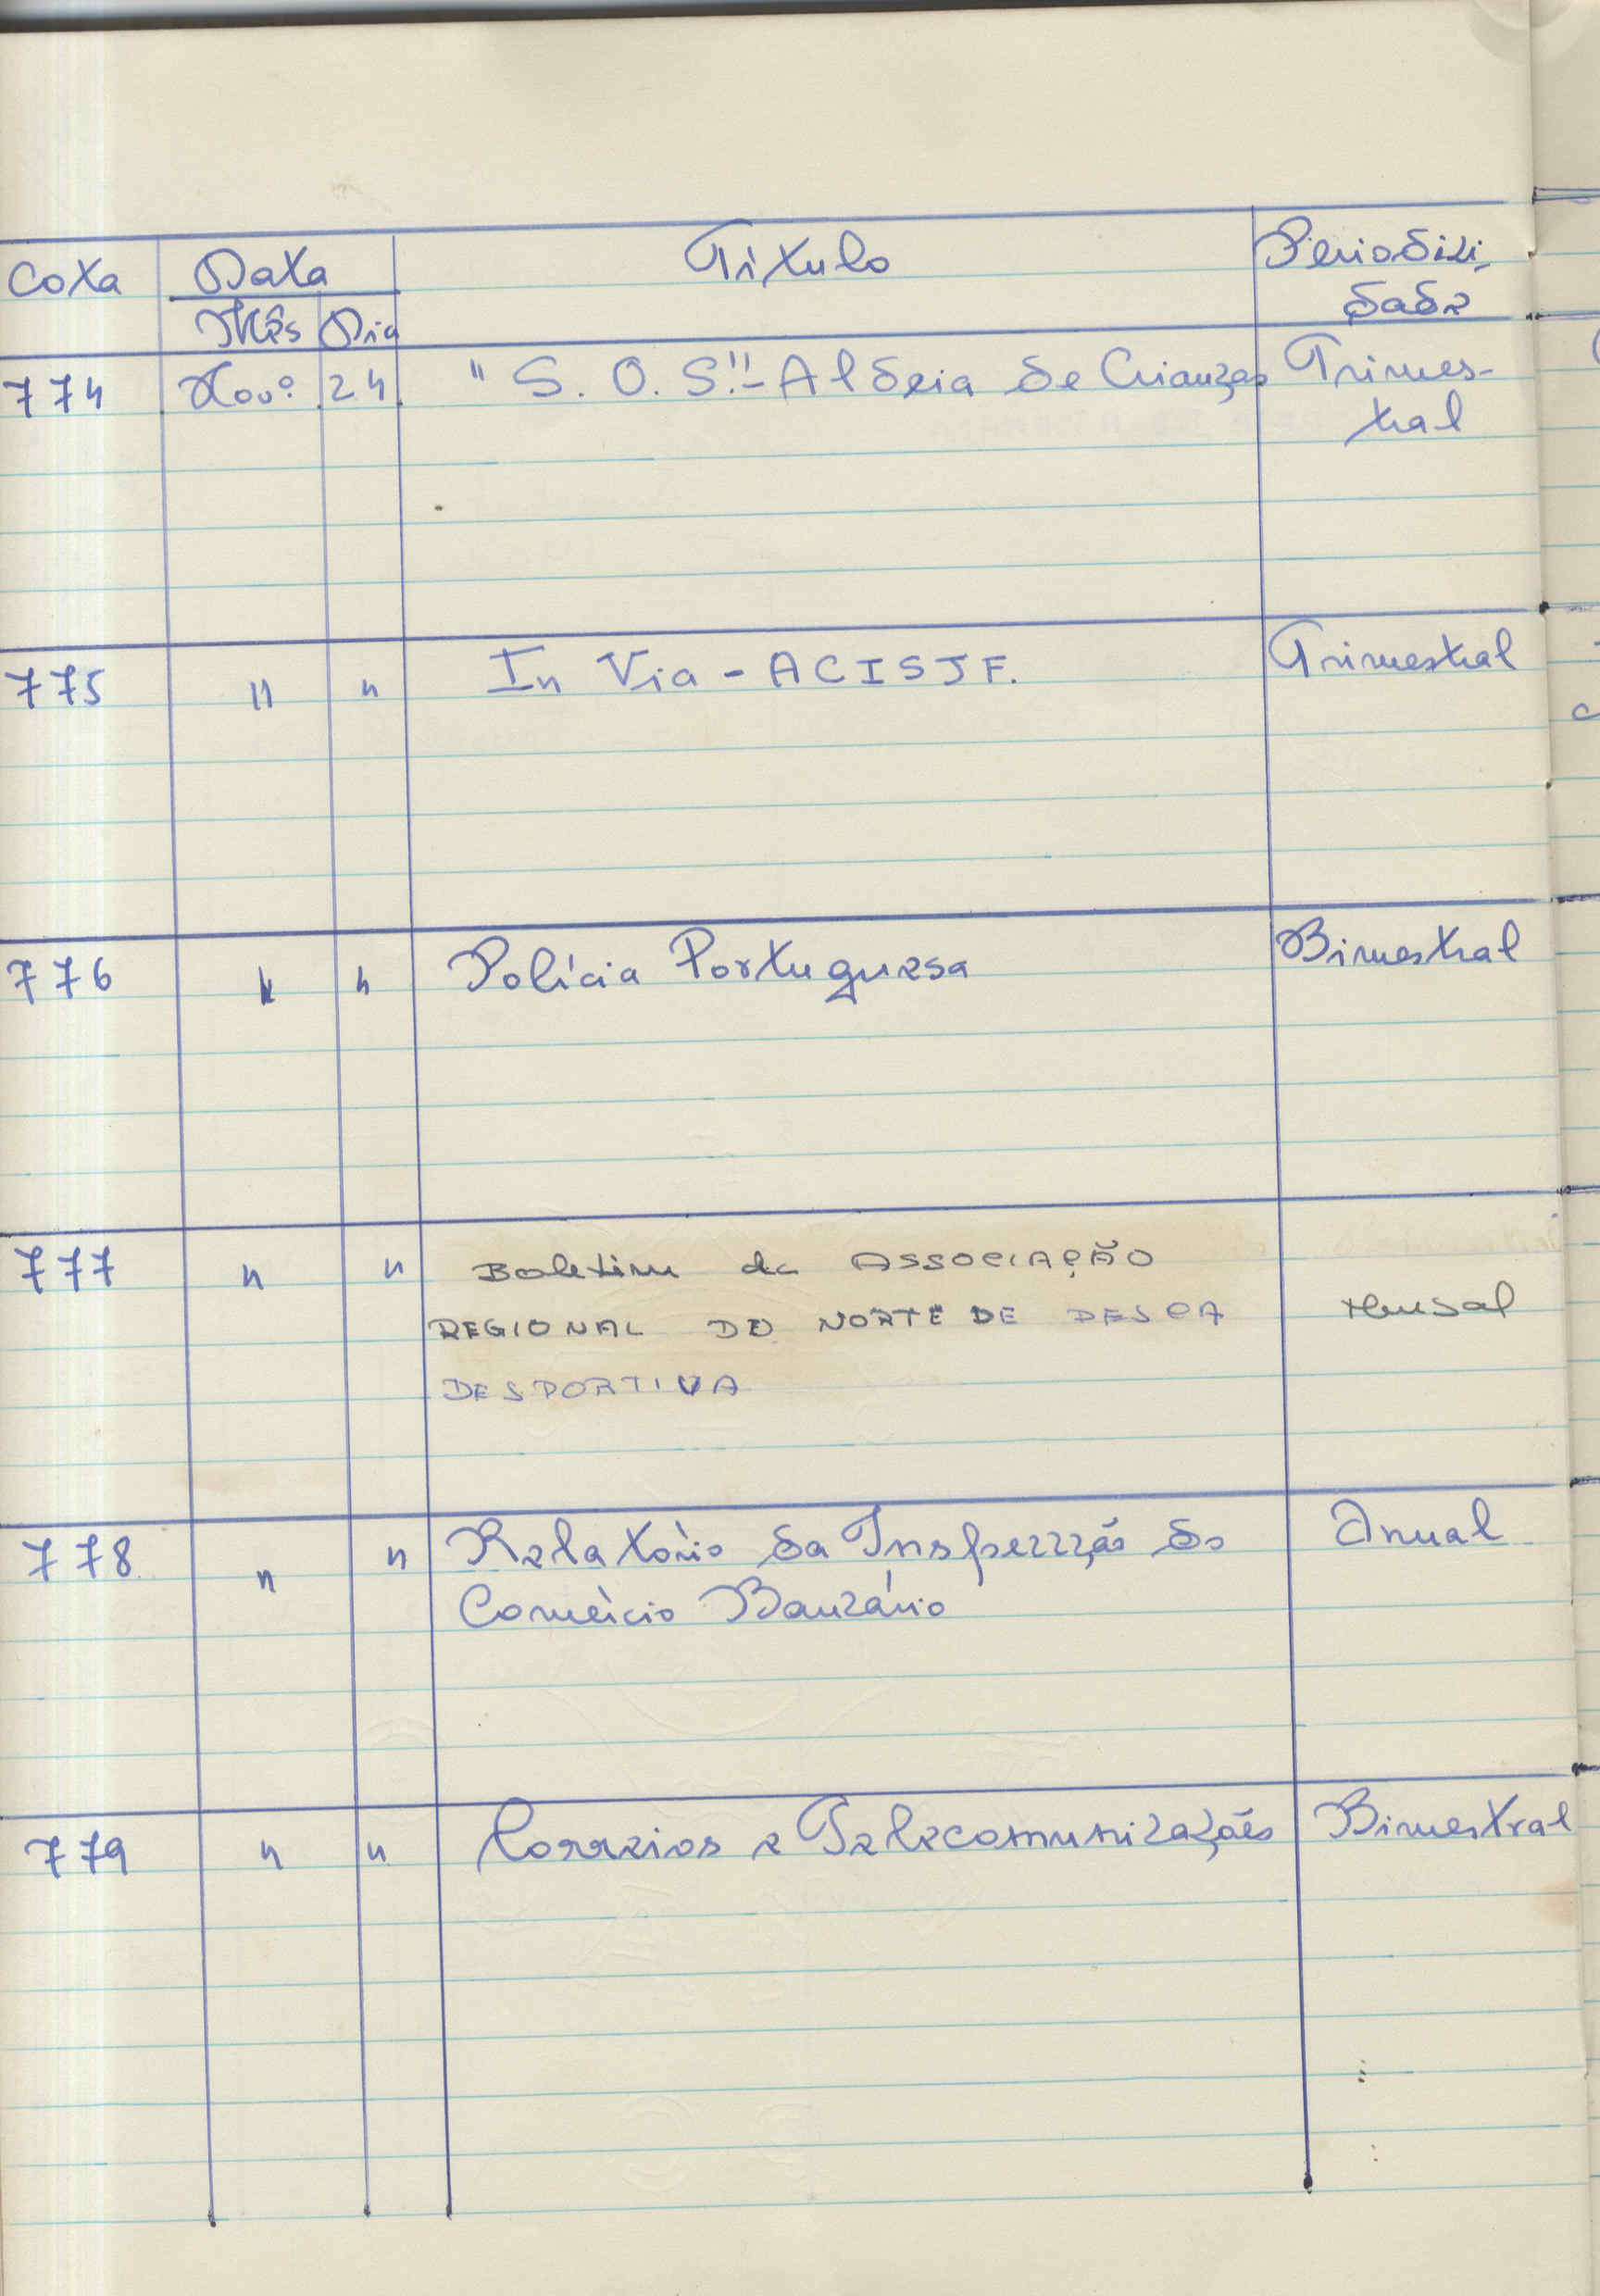 Cota Data Título Periodici-
Mês Dia dade
774 Nov.º 24 "S. O. S." - Aldeia de Crianças Trimes-
tral
775 " " In Via - ACISJF. Trimestral
776 " " Polícia Portuguesa Bimestral
777 " " Boletim da ASSOCIAÇÃO
REGIONAL DO NORTE DE PESCA Mensal
DESPORTIVA
778 " " Relatório da Inspecção do Anual
Comércio Bancário
779 " " Correios e Telecomunicações Bimestral